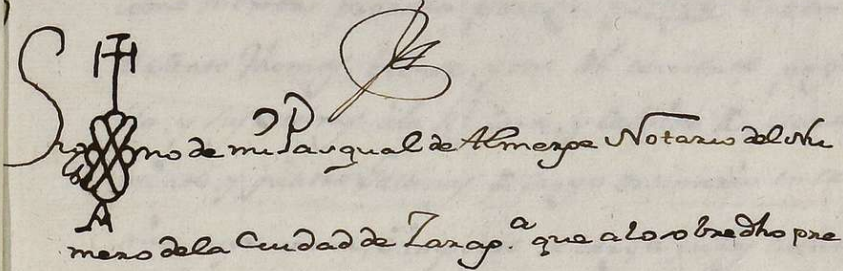 Sig no de mi Pasqual de Almerge Notario del Nu
mero de la Ciudad de Zarag.ª que a lo sobredho pre